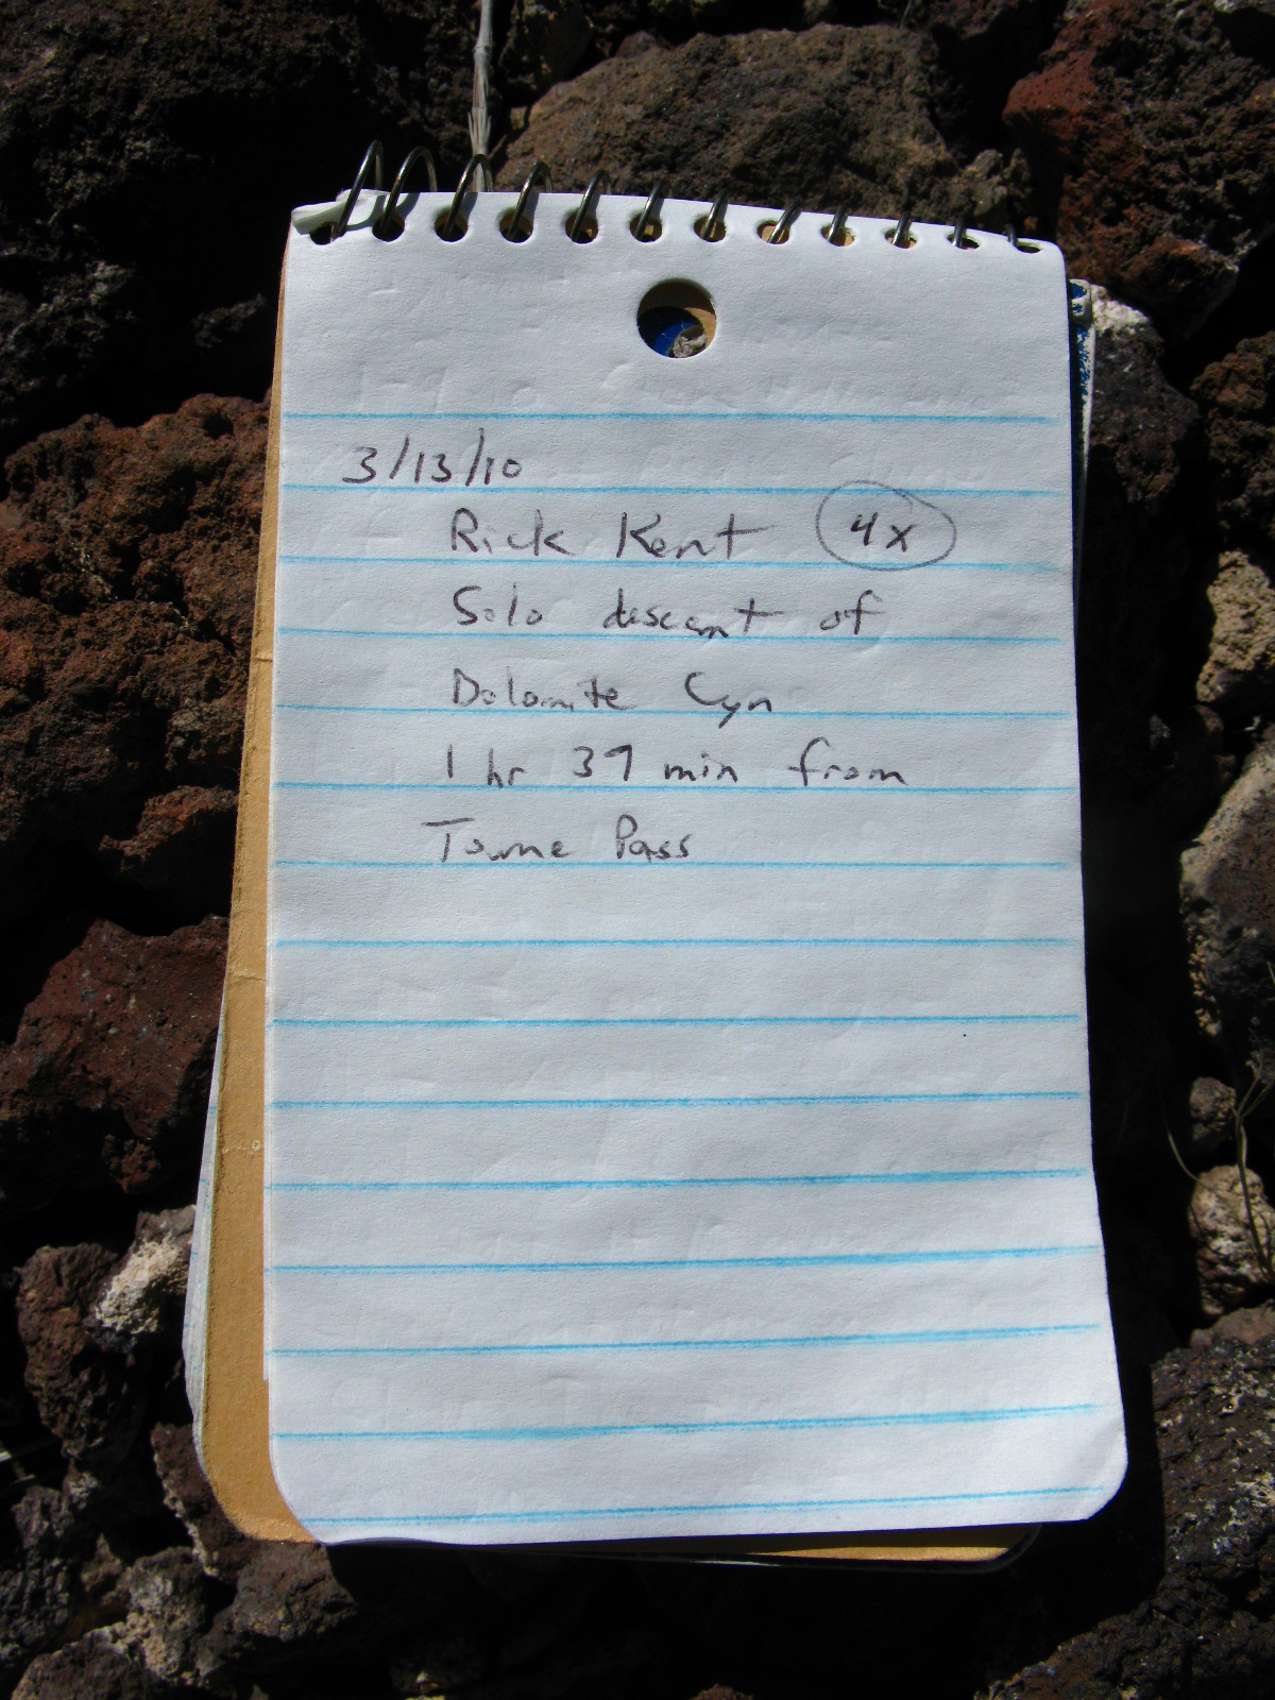 3/13/10
Rick Kent 4x
Solo descent of
Dolomite Cyn
1 hr 39 min from
Towne Pass